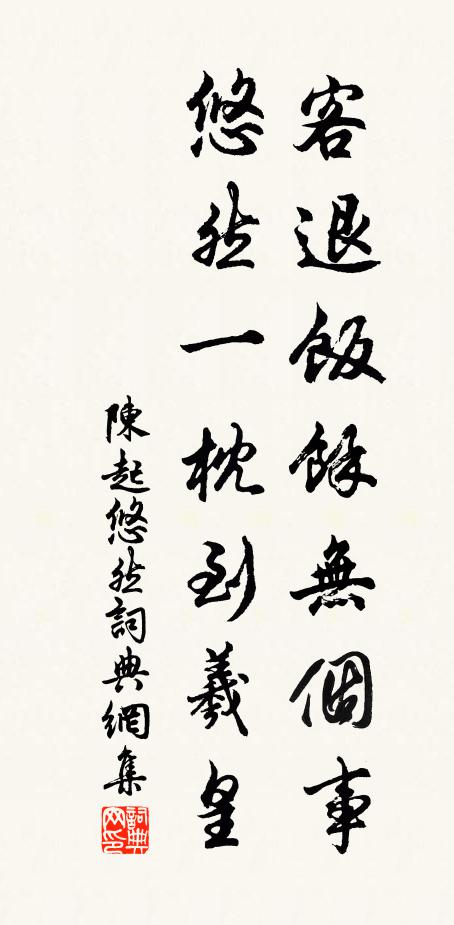 客退飯餘無個事
悠然一枕到羲皇
陳起悠然詞典網集
詞典網印